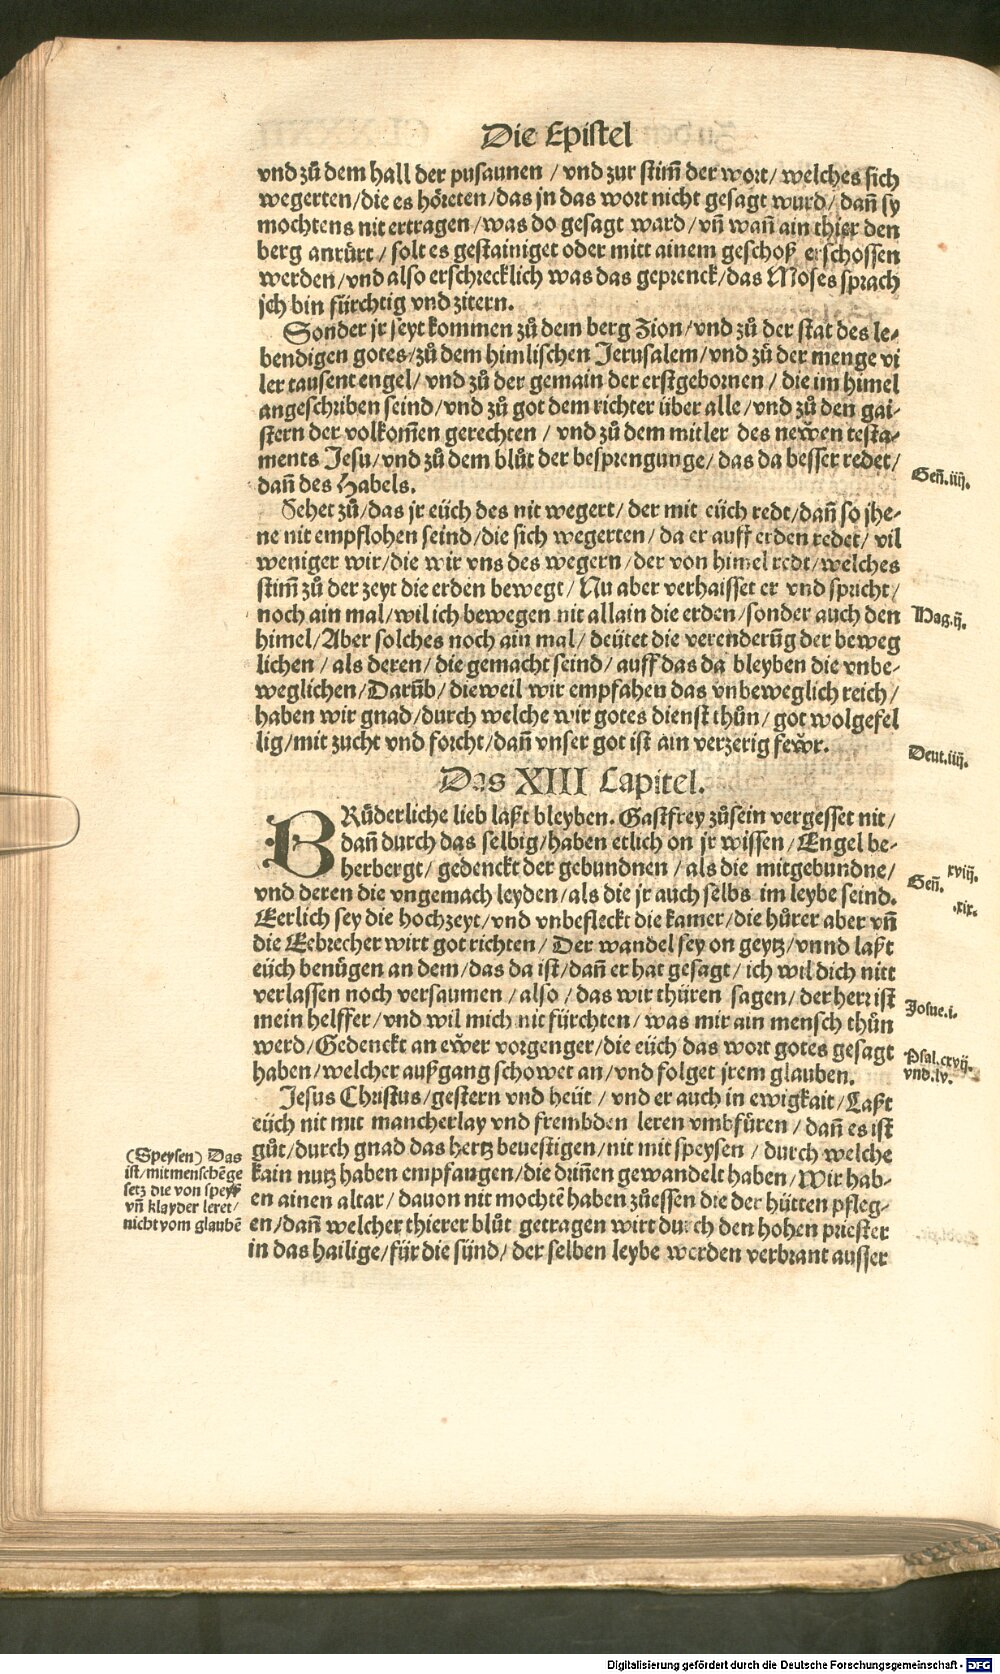 Die Epistel
vnd zů dem hall der pusaunen / vnd zur stim̃ der wort / welches sich
wegerten / die es höreten / das jn das wort nicht gesagt wurd / dañ sy
mochtens nit ertragen / was do gesagt ward / vñ wañ ain thier den
berg anrürt / solt es gestainiget oder mitt ainem geschoß erschossen
werden / vnd also erschrecklich was das geprenck / das Moses sprach
jch bin fürchtig vnd zitern.
Sonder jr seyt kommen zů dem berg Zion / vnd zů der stat des le-
bendigen gotes / zů dem himlischen Jerusalem / vnd zů der menge vi
ler tausent engel / vnd zů der gemain der erstgebornen / die im himel
angeschriben seind / vnd zů got dem richter über alle / vnd zů den gai-
stern der volkom̃en gerechten / vnd zů dem mitler des newen testa-
ments Jesu / vnd zů dem blůt der besprengunge / das da besser redet /
dañ des Habels.
Gen̄.iiij.
Sehet zů / das jr eüch des nit wegert / der mit eüch redt / dañ so jhe-
ne nit empflohen seind / die sich wegerten / da er auff erden redet / vil
weniger wir / die wir vns des wegern / der von himel redt / welches
stim̃ zů der zeyt die erden bewegt / Nu aber verhaisset er vnd spricht /
noch ain mal / wil ich bewegen nit allain die erden / sonder auch den
Hag.ij.
himel / Aber solches noch ain mal / deütet die verenderũg der beweg
lichen / als deren / die gemacht seind / auff das da bleyben die vnbe-
weglichen / Darũb / dieweil wir empfahen das vnbeweglich reich /
haben wir gnad / durch welche wir gotes dienst thůn / got wolgefel
lig / mit zucht vnd forcht / dañ vnser got ist ain verzerig fewr.
Deut.iiij.
Das XIII Capitel.
BRůderliche lieb laßt bleyben. Gastfrey zůsein vergesset nit /
dañ durch das selbig / haben etlich on jr wissen / Engel be-
herbergt / gedenckt der gebundnen / als die mitgebundne /
Gen̄. xviij.
vnd deren die vngemach leyden / als die jr auch selbs im leybe seind.
.xix.
Eerlich sey die hochzeyt / vnd vnbefleckt die kamer / die hůrer aber vñ
die Eebrecher wirt got richten / Der wandel sey on geytz / vnnd laßt
eüch benügen an dem / das da ist / dañ er hat gesagt / ich wil dich nitt
verlassen noch versaumen / also / das wir thüren sagen / der herr ist
Josue.i.
mein helffer / vnd wil mich nit fürchten / was mir ain mensch thůn
werd / Gedenckt an ewer vorgenger / die eüch das wort gotes gesagt
Psal.cxvij.
haben / welcher außgang schowet an / vnd folget jrem glauben.
vnd.lv.
Jesus Christus / gestern vnd heüt / vnd er auch in ewigkait / Laßt
eüch nit mit mancherlay vnd frembden leren vmbfüren / dañ es ist
gůt / durch gnad das hertz bevestigen / nit mit speysen / durch welche
kain nutz haben empfangen / die driñen gewandelt haben / Wir hab-
en ainen altar / dauon nit mochtẽ haben zůessen die der hütten pfleg-
en / dañ welcher thierer blůt getragen wirt durch den hohen priester
in das hailige / für die sünd / der selben leybe werden verbrant ausser
(Speysen) Das
ist / mit menschẽ ge
setz die von speyß
vñ klayder leret /
nicht vom glaubẽ
Digitalisierung gefördert durch die Deutsche Forschungsgemeinschaft - DFG